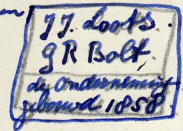 J.J. Loots.
G R Bolt,
de Onderneming
gebouwd 1858.